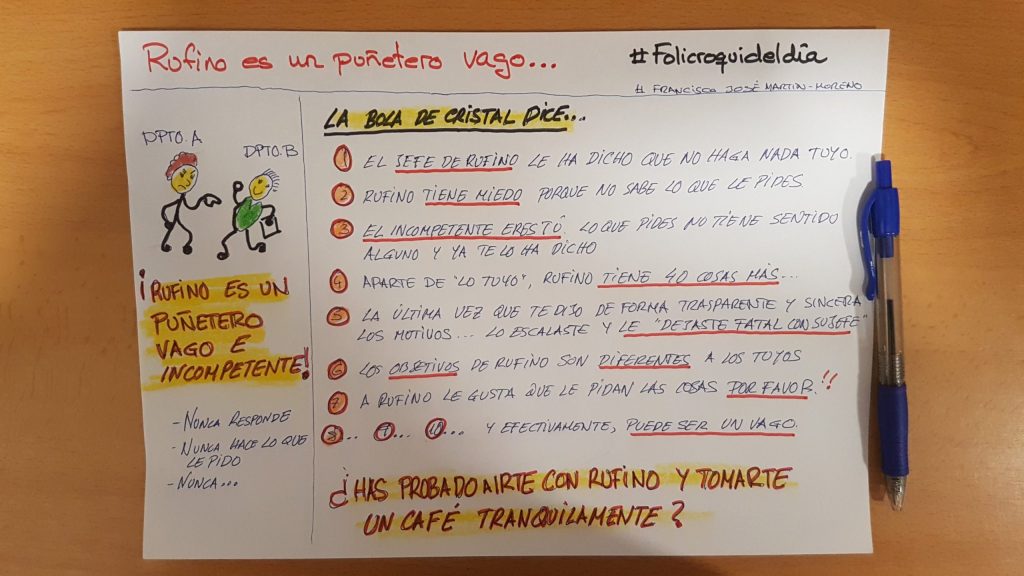 Rufino es un puñetero vago...
#Folicroquideldía
# FRANCISCO JOSÉ MARTIN-MORENO
DPTO. A
DPTO. B
¡RUFINO ES UN
PUÑETERO
VAGO E
INCOMPETENTE!
- NUNCA RESPONDE
- NUNCA HACE LO QUE
LE PIDO
- NUNCA...
LA BOLA DE CRISTAL DICE...
1 EL JEFE DE RUFINO LE HA DICHO QUE NO HAGA NADA TUYO.
2 RUFINO TIENE MIEDO PORQUE NO SABE LO QUE LE PIDES
3 EL INCOMPETENTE ERES TÚ. LO QUE PIDES NO TIENE SENTIDO
ALGUNO Y YA TE LO HA DICHO
4 APARTE DE "LO TUYO", RUFINO TIENE 40 COSAS MÁS...
5 LA ÚLTIMA VEZ QUE TE DIJO DE FORMA TRASPARENTE Y SINCERA
LOS MOTIVOS... LO ESCALASTE Y LE "DEJASTE FATAL CON SU JEFE"
6 LOS OBJETIVOS DE RUFINO SON DIFERENTES A LOS TUYOS
7 A RUFINO LE GUSTA QUE LE PIDAN LAS COSAS POR FAVOR!!
8... 9... 10... Y EFECTIVAMENTE, PUEDE SER UN VAGO.
¿HAS PROBADO A IRTE CON RUFINO Y TOMARTE
UN CAFÉ TRANQUILAMENTE?